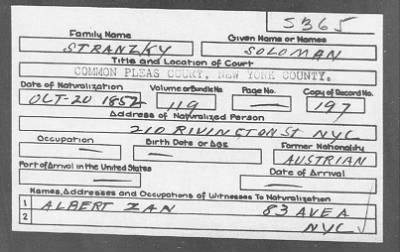 5365
Family Name Given Name or Names
STRANZKY SOLOMAN
Title and Location of Court
COMMON PLEAS COURT, NEW YORK COUNTY.
Date of Naturalization Volume or Bundle No. Page No. Copy of Record No.
OCT-20 1852 119 — 197
Address of Naturalized Person
210 RIVINGTON ST NYC
Occupation Birth Date or Age Former Nationality
— — AUSTRIAN
Port of Arrival in the United States Date of Arrival
— —
Names, Addresses and Occupations of Witnesses To Naturalization
1 ALBERT ZAN 83 AVE A
2 NYC